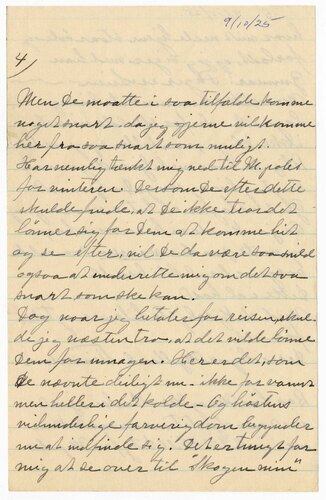 9/10/25
4)
Men De maatte i saa tilfælde komme
noget snart, da jeg gjerne vil komme
her fra saa snart som muligt.
Har nemlig tænkt mig ned til Mpoles
for vinteren. Dersom De efter dette
skulde finde, at De ikke tror det
lönner sig for Dem at komme hit
og se efter, vil De da være saa snild
ogsaa at underrette mig om det saa
snart som ske kan.
Dog naar jeg betaler for reisen, skul-
de jeg næsten tro, at det vilde lönne
Dem for umagen. Her er det, som
De nævnte deiligt nu - ikke for varmt
men heller i det kolde - Og höstens
vidunderlige farverigdom begynder
nu at indfinde sig. Det er tungt for
mig at se over til "Skogen min"